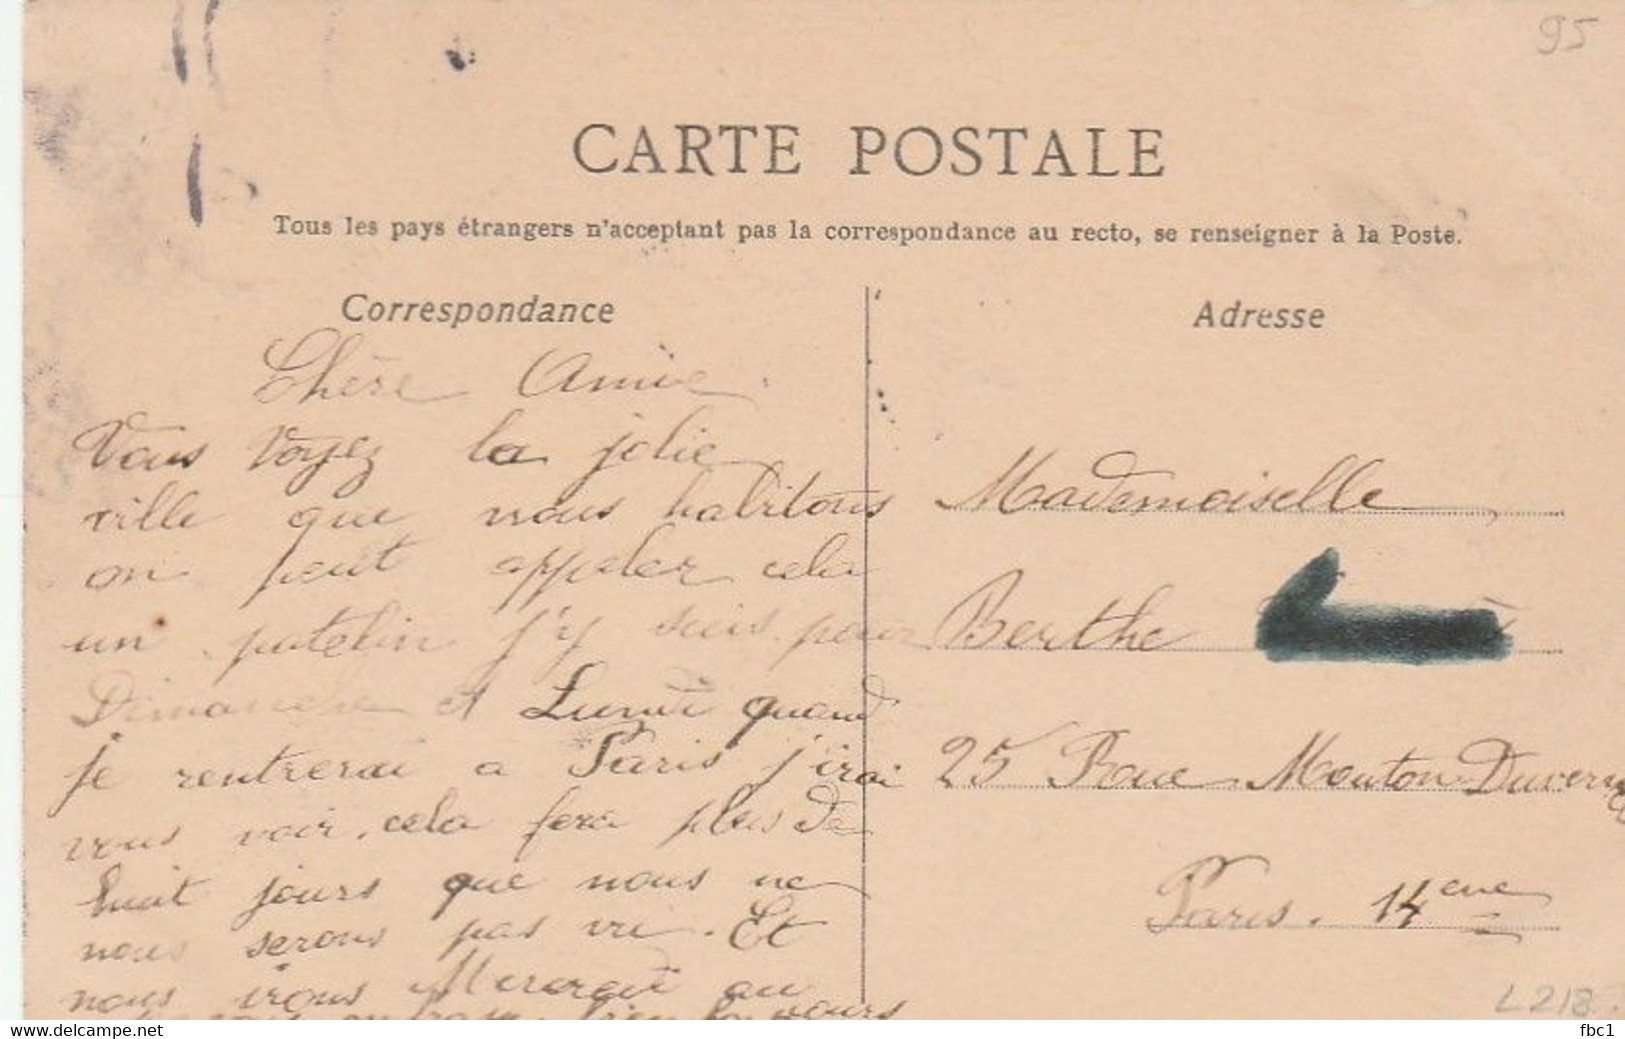 95
CARTE POSTALE
Tous les pays étrangers n'acceptant pas la correspondance au recto, se renseigner à la Poste.
Correspondance
Chère Amie
Vous voyez la jolie
ville que nous habitons
on peut appeler cela
un patelin j'y suis pour
Dimanche et Lundi quand
je rentrerai a Paris j'irai
vous voir. cela fera plus de
huit jours que nous ne
nous serons pas vu. Et
nous irons Mercredi au
cours
Adresse
Mademoiselle
Berthe
25 Rue Mouton Duvern
Paris. 14eme
L213
www.delcampe.net
fbc1